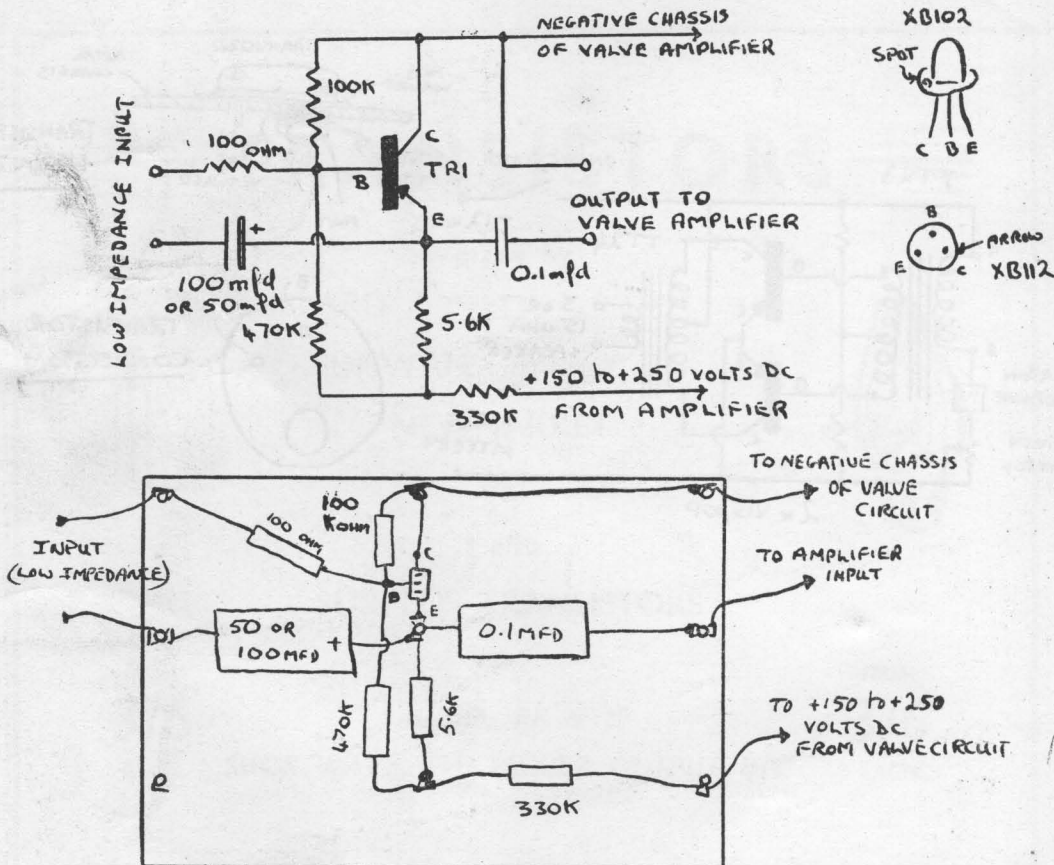 NEGATIVE CHASSIS
OF VALVE AMPLIFIER
XB102
SPOT
C B E
100K
100 OHM
LOW IMPEDANCE INPUT
C
B
TR1
E
OUTPUT TO
VALVE AMPLIFIER
B
ARROW
E
C
XB112
+
100mfd
OR 50mfd
0.1mfd
470K
5.6K
+150 to +250 VOLTS DC
FROM AMPLIFIER
330K
TO NEGATIVE CHASSIS
OF VALVE
CIRCUIT
100
KOHM
100 OHM
INPUT
(LOW IMPEDANCE)
C
B
E
TO AMPLIFIER
INPUT
50 OR
100MFD
+
0.1MFD
470K
5.6K
TO +150 to +250
VOLTS DC
FROM VALVE CIRCUIT
330K